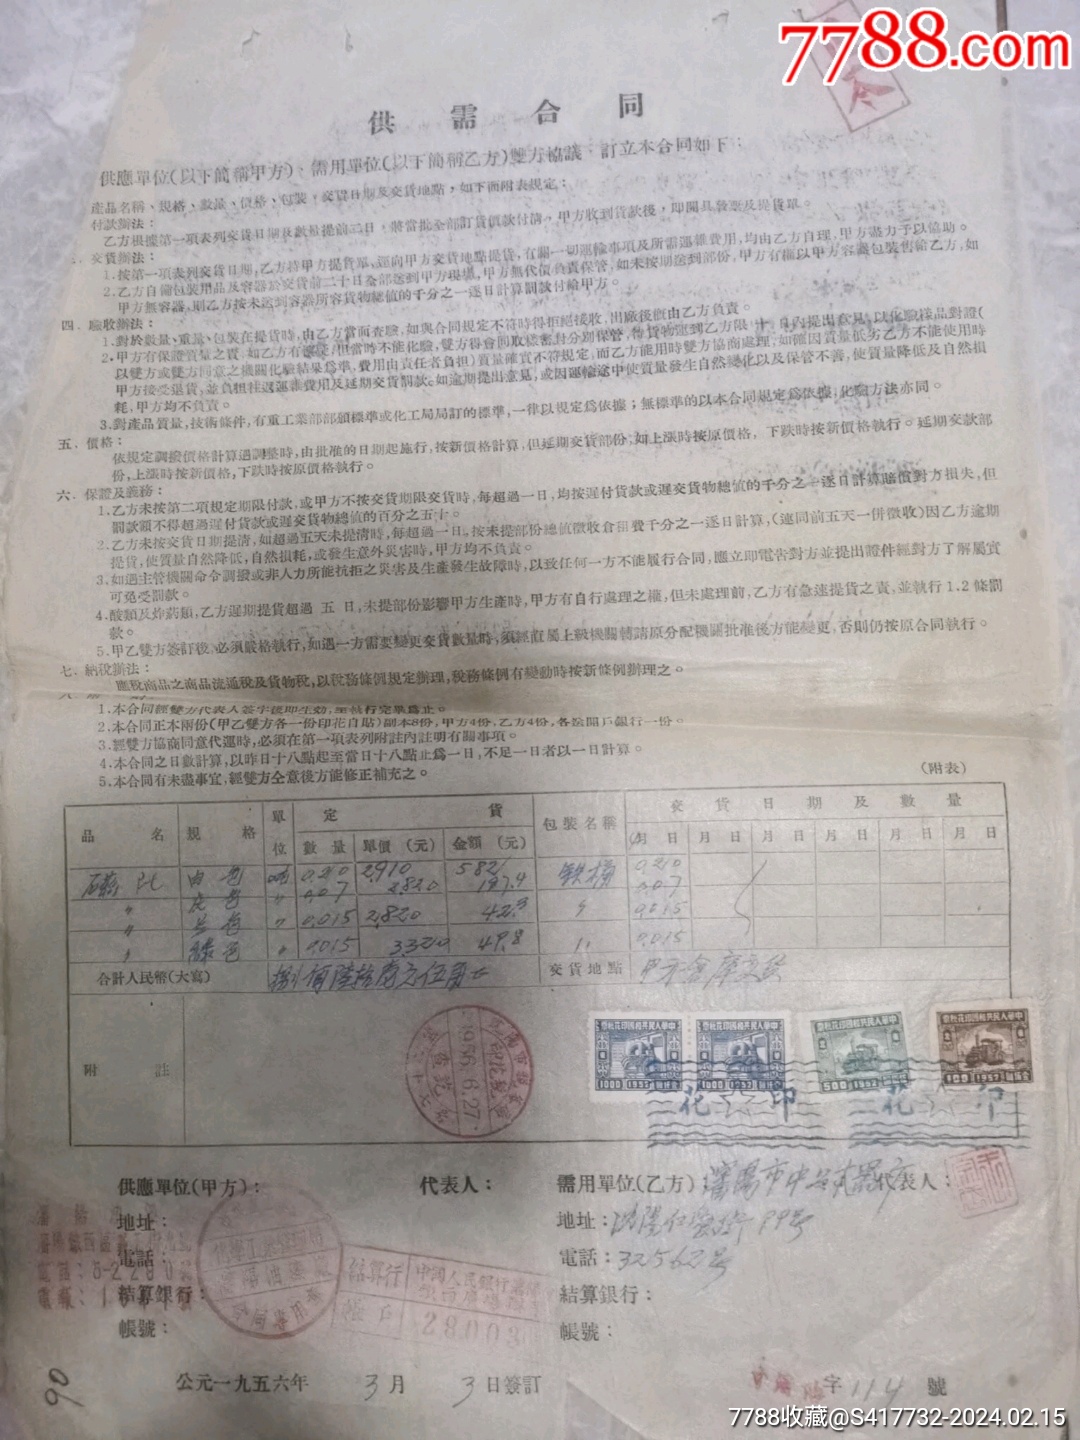 7788.com
供需合同
供應單位(以下簡稱甲方)、需用單位(以下簡稱乙方)雙方協議，訂立本合同如下：
產品名稱、規格、數量、價格、包裝、交貨日期及交貨地點，如下面附表規定：
付款辦法：
乙方根據第一項表列交貨日期及數量提前二日，將當批全部訂貨價款付清，甲方收到貨款後，即開具發票及提貨單。
交貨辦法：
1.按第一項表列交貨日期，乙方持甲方提貨單，逕向甲方交貨地點提貨，有關一切運輸事項及所需運雜費用，均由乙方自理，甲方盡力予以協助。
2.乙方自備包裝用品及容器於交貨前二十日全部送到甲方現場，甲方無代價負責保管，如未按期送到部份，甲方有權以甲方容器包裝售給乙方，如
甲方無容器，則乙方按未送到容器所容貨物總值的千分之一逐日計算罰款付給甲方。
四、驗收辦法：
1.對於數量、重量、包裝在提貨時，由乙方當面查驗，如與合同規定不符時得拒絕接收，出廠後概由乙方負責。
2.甲方有保證質量之責，如乙方有懷疑，但當時不能化驗，雙方得會同取樣密封分別保管，俟貨物運到乙方限十日內提出意見，以化驗樣品對證(
以雙方或雙方同意之機關化驗結果為準，費用由責任者負担)質量確實不符規定，而乙方能用時雙方協商處理，如確因質量低劣乙方不能使用時
甲方接受退貨，並負担往返運雜費用及延期交貨罰款。如逾期提出意見，或因運輸途中使質量發生自然變化以及保管不善，使質量降低及自然損
耗，甲方均不負責。
3.對產品質量，技術條件，有重工業部部頒標準或化工局局訂的標準，一律以規定為依據；無標準的以本合同規定為依據，化驗方法亦同。
五、價格：
依規定調撥價格計算遇調整時，由批准的日期起施行，按新價格計算，但延期交貨部份，如上漲時按原價格，下跌時按新價格執行。延期交款部
份，上漲時按新價格，下跌時按原價格執行。
六、保證及義務：
1.乙方未按第二項規定期限付款，或甲方不按交貨期限交貨時，每超過一日，均按遲付貨款或遲交貨物總值的千分之一逐日計算賠償對方損失，但
罰款額不得超過遲付貨款或遲交貨物總值的百分之五十。
2.乙方未按交貨日期提清，如超過五天未提清時，每超過一日，按未提部份總值徵收倉租費千分之一逐日計算，(連同前五天一併徵收)因乙方逾期
提貨，使質量自然降低，自然損耗，或發生意外災害時，甲方均不負責。
3.如遇主管機關命令調撥或非人力所能抗拒之災害及生產發生故障時，以致任何一方不能履行合同，應立即電告對方並提出證件經對方了解屬實
可免受罰款。
4.酸類及炸葯類，乙方遲期提貨超過 五 日，未提部份影響甲方生產時，甲方有自行處理之權，但未處理前，乙方有急速提貨之責，並執行1.2條罰
款。
5.甲乙雙方簽訂後，必須嚴格執行，如遇一方需要變更交貨數量時，須經直屬上級機關轉請原分配機關批准後方能變更，否則仍按原合同執行。
七、納稅辦法：
應稅商品之商品流通稅及貨物稅，以稅務條例規定辦理，稅務條例有變動時按新條例辦理之。
1.本合同經雙方代表人簽字後即生效，至執行完畢為止。
2.本合同正本兩份(甲乙雙方各一份印花自貼)副本8份，甲方4份，乙方4份，各送開戶銀行一份。
3.經雙方協商同意代運時，必須在第一項表列附註內註明有關事項。
4.本合同之日數計算，以昨日十八點起至當日十八點止為一日，不足一日者以一日計算。
5.本合同有未盡事宜，經雙方仝意後方能修正補充之。
(附表)
品名 規格 單位 定貨 包裝名稱 交貨日期及數量
數量 單價(元) 金額(元) 月日 月日 月日 月日 月日 月日
白色 0.20 2,910 582 铁桶 0.20
〃 0.07 2,820 197.4 0.07
〃 〃 0.015 2,820 42.3 〃 0.015
〃 綠色 〃 0.015 3320 49.8 〃 0.015
合計人民幣(大寫) 捌佰陸拾 交貨地點 甲方倉庫交货
附註
1956.6.27
中華人民共和國印花稅票
1000 1952
1000 1952
500 1952
100 1952
印花 印花
供應單位(甲方)： 代表人： 需用單位(乙方)：瀋陽市中 代表人：
地址： 地址：瀋陽 99号
電話： 電話：32562号
結算銀行： 結算銀行：
帳號： 帳號：
合同專用章
結算行 中國人民銀行
帳戶 28003
公元一九五六年 3月 3日簽訂 字114號
90
7788收藏@S417732-2024.02.15